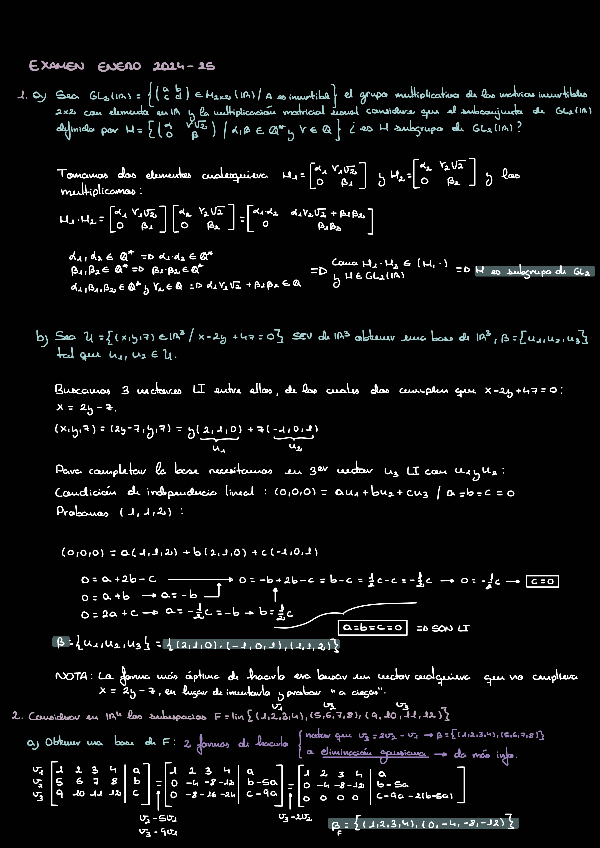 EXAMEN ENERO 2024-25
1. a) Sea GL₂(ℝ) = {(a b / c d) ∈ M₂ₓ₂(ℝ) / A es invertible} el grupo multiplicativo de las matrices invertibles
2x2 con elementos en ℝ y la multiplicación matricial usual considere que el subconjunto de GL₂(ℝ)
definido por H = {(α γ√2 / 0 β) / α,β ∈ Q* y γ ∈ Q} ¿es H subgrupo de GL₂(ℝ)?
Tomamos dos elementos cualesquiera H₁ = [α₁ γ₁√2 / 0 β₁] y H₂ = [α₂ γ₂√2 / 0 β₂] y los
multiplicamos:
H₁·H₂ = [α₁ γ₁√2 / 0 β₁] [α₂ γ₂√2 / 0 β₂] = [α₁·α₂ α₁γ₂√2 + β₁β₂ / 0 β₁β₂]
α₁,α₂ ∈ Q* => α₁·α₂ ∈ Q*
β₁,β₂ ∈ Q* => β₁·β₂ ∈ Q*
α₁,β₁,β₂ ∈ Q* y γ₂ ∈ Q => α₁γ₂√2 + β₁β₂ ∈ Q
=> Como H₁·H₂ ∈ (H, ·)
y H ∈ GL₂(ℝ)
=> H es subgrupo de GL₂
b) Sea U = {(x,y,z) ∈ ℝ³ / x-2y+z=0} SEV de ℝ³ obtener una base de ℝ³, β = {u₁,u₂,u₃}
tal que u₁, u₂ ∈ U.
Buscamos 3 vectores LI entre ellos, de los cuales dos cumplen que x-2y+z=0:
x = 2y-z.
(x,y,z) = (2y-z,y,z) = y(2,1,0) + z(-1,0,1)
u₁ u₂
Para completar la base necesitamos un 3er vector u₃ LI con u₁ y u₂:
Condición de independencia lineal: (0,0,0) = au₁+bu₂+cu₃ / a=b=c=0
Probamos (1,1,2):
(0,0,0) = a(1,1,2) + b(2,1,0) + c(-1,0,1)
0 = a+2b-c → 0 = -b+2b-c = b-c = ½c-c = -½c → 0 = -½c → c=0
0 = a+b → a=-b
0 = 2a+c → a = -½c = -b → b = ½c
a=b=c=0 => SON LI
β = {u₁,u₂,u₃} = {(2,1,0), (-1,0,1), (1,1,2)}
NOTA: La forma más óptima de hacerlo era buscar un vector cualquiera que no cumpliera
x = 2y-z, en lugar de inventarlo y probar "a ciegas".
v₁ v₂ v₃
2. Considerar en ℝ⁴ los subespacios F = lin{(1,2,3,4), (5,6,7,8), (9,10,11,12)}
a) Obtener una base de F: 2 formas de hacerlo
notar que v₃ = 2v₂ - v₁ → β = {(1,2,3,4), (5,6,7,8)}
a eliminación gaussiana → da más info.
v₁ [1 2 3 4 | a] = [1 2 3 4 | a] = [1 2 3 4 | a]
v₂ [5 6 7 8 | b] = [0 -4 -8 -12 | b-5a] = [0 -4 -8 -12 | b-5a]
v₃ [9 10 11 12 | c] = [0 -8 -16 -24 | c-9a] = [0 0 0 0 | c-9a-2(b-5a)]
v₂-5v₁ v₃-2v₂
v₃-9v₁
β_F = {(1,2,3,4), (0,-4,-8,-12)}